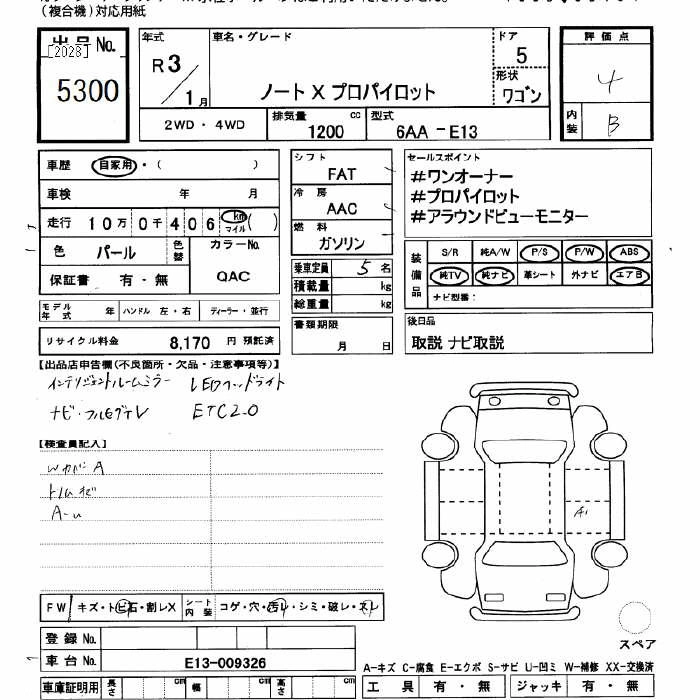 (複合機)対応用紙
出品No.
[2028]
5300
年式
R3/1月
車名・グレード
ノート X プロパイロット
ドア
5
形状
ワゴン
2WD・4WD
排気量 cc
1200
型式
6AA-E13
評価点
4
内装
B
車歴 自家用・( )
車検 年 月
走行 10万0千406 km マイル ( )
色 パール 色替
カラーNo.
QAC
保証書 有・無
モデル年式 年 ハンドル 左・右 ディーラー・並行
リサイクル料金 8,170 円 預託済
シフト
FAT
冷房
AAC
燃料
ガソリン
乗車定員 5 名
積載量 kg
総重量 kg
書類期限
月 日
セールスポイント
#ワンオーナー
#プロパイロット
#アラウンドビューモニター
装備品
S/R 純A/W P/S P/W ABS
純TV 純ナビ 革シート 外ナビ エアB
ナビ型番:
後日品
取説 ナビ取説
【出品店申告欄(不良箇所・欠品・注意事項等)】
インテリジェントルームミラー LEDヘッドライト
ナビ・フルセグTV ETC2.0
【検査員記入】
A
A-u
A1
FW キズ・トビ石・割レX シート内装 コゲ・穴・汚レ・シミ・破レ・スレ
登録No.
車台No. E13-009326
車庫証明用 長さ cm 幅 cm 高さ cm
スペア
A-キズ C-腐食 E-エクボ S-サビ U-凹ミ W-補修 XX-交換済
工具 有・無 ジャッキ 有・無